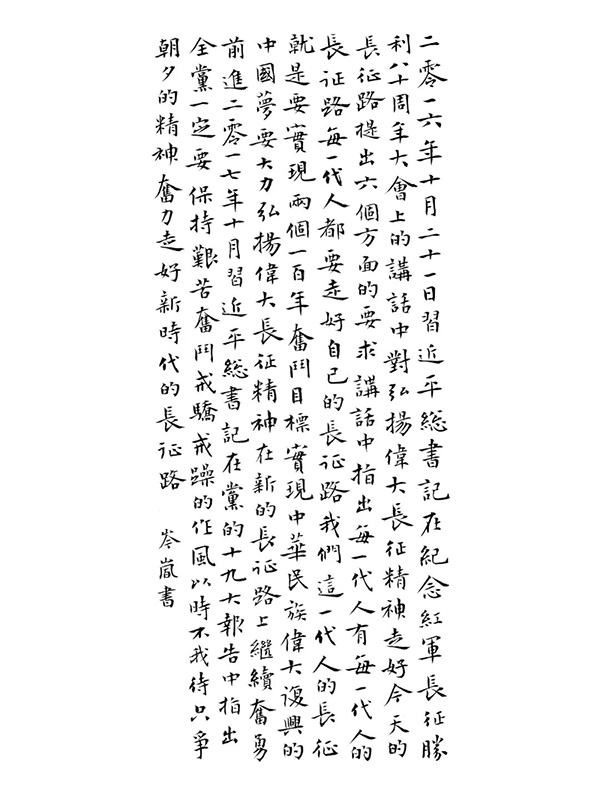 二零一六年十月二十一日習近平總書記在紀念紅軍長征勝
利八十周年大會上的講話中對弘揚偉大長征精神走好今天的
長征路提出六個方面的要求講話中指出每一代人有每一代人的
長征路每一代人都要走好自己的長征路我們這一代人的長征
就是要實現兩個一百年奮鬥目標實現中華民族偉大復興的
中國夢要大力弘揚偉大長征精神在新的長征路上繼續奮勇
前進二零一七年十月習近平總書記在黨的十九大報告中指出
全黨一定要保持艱苦奮鬥戒驕戒躁的作風以時不我待只爭
朝夕的精神奮力走好新時代的長征路 岑嵐書